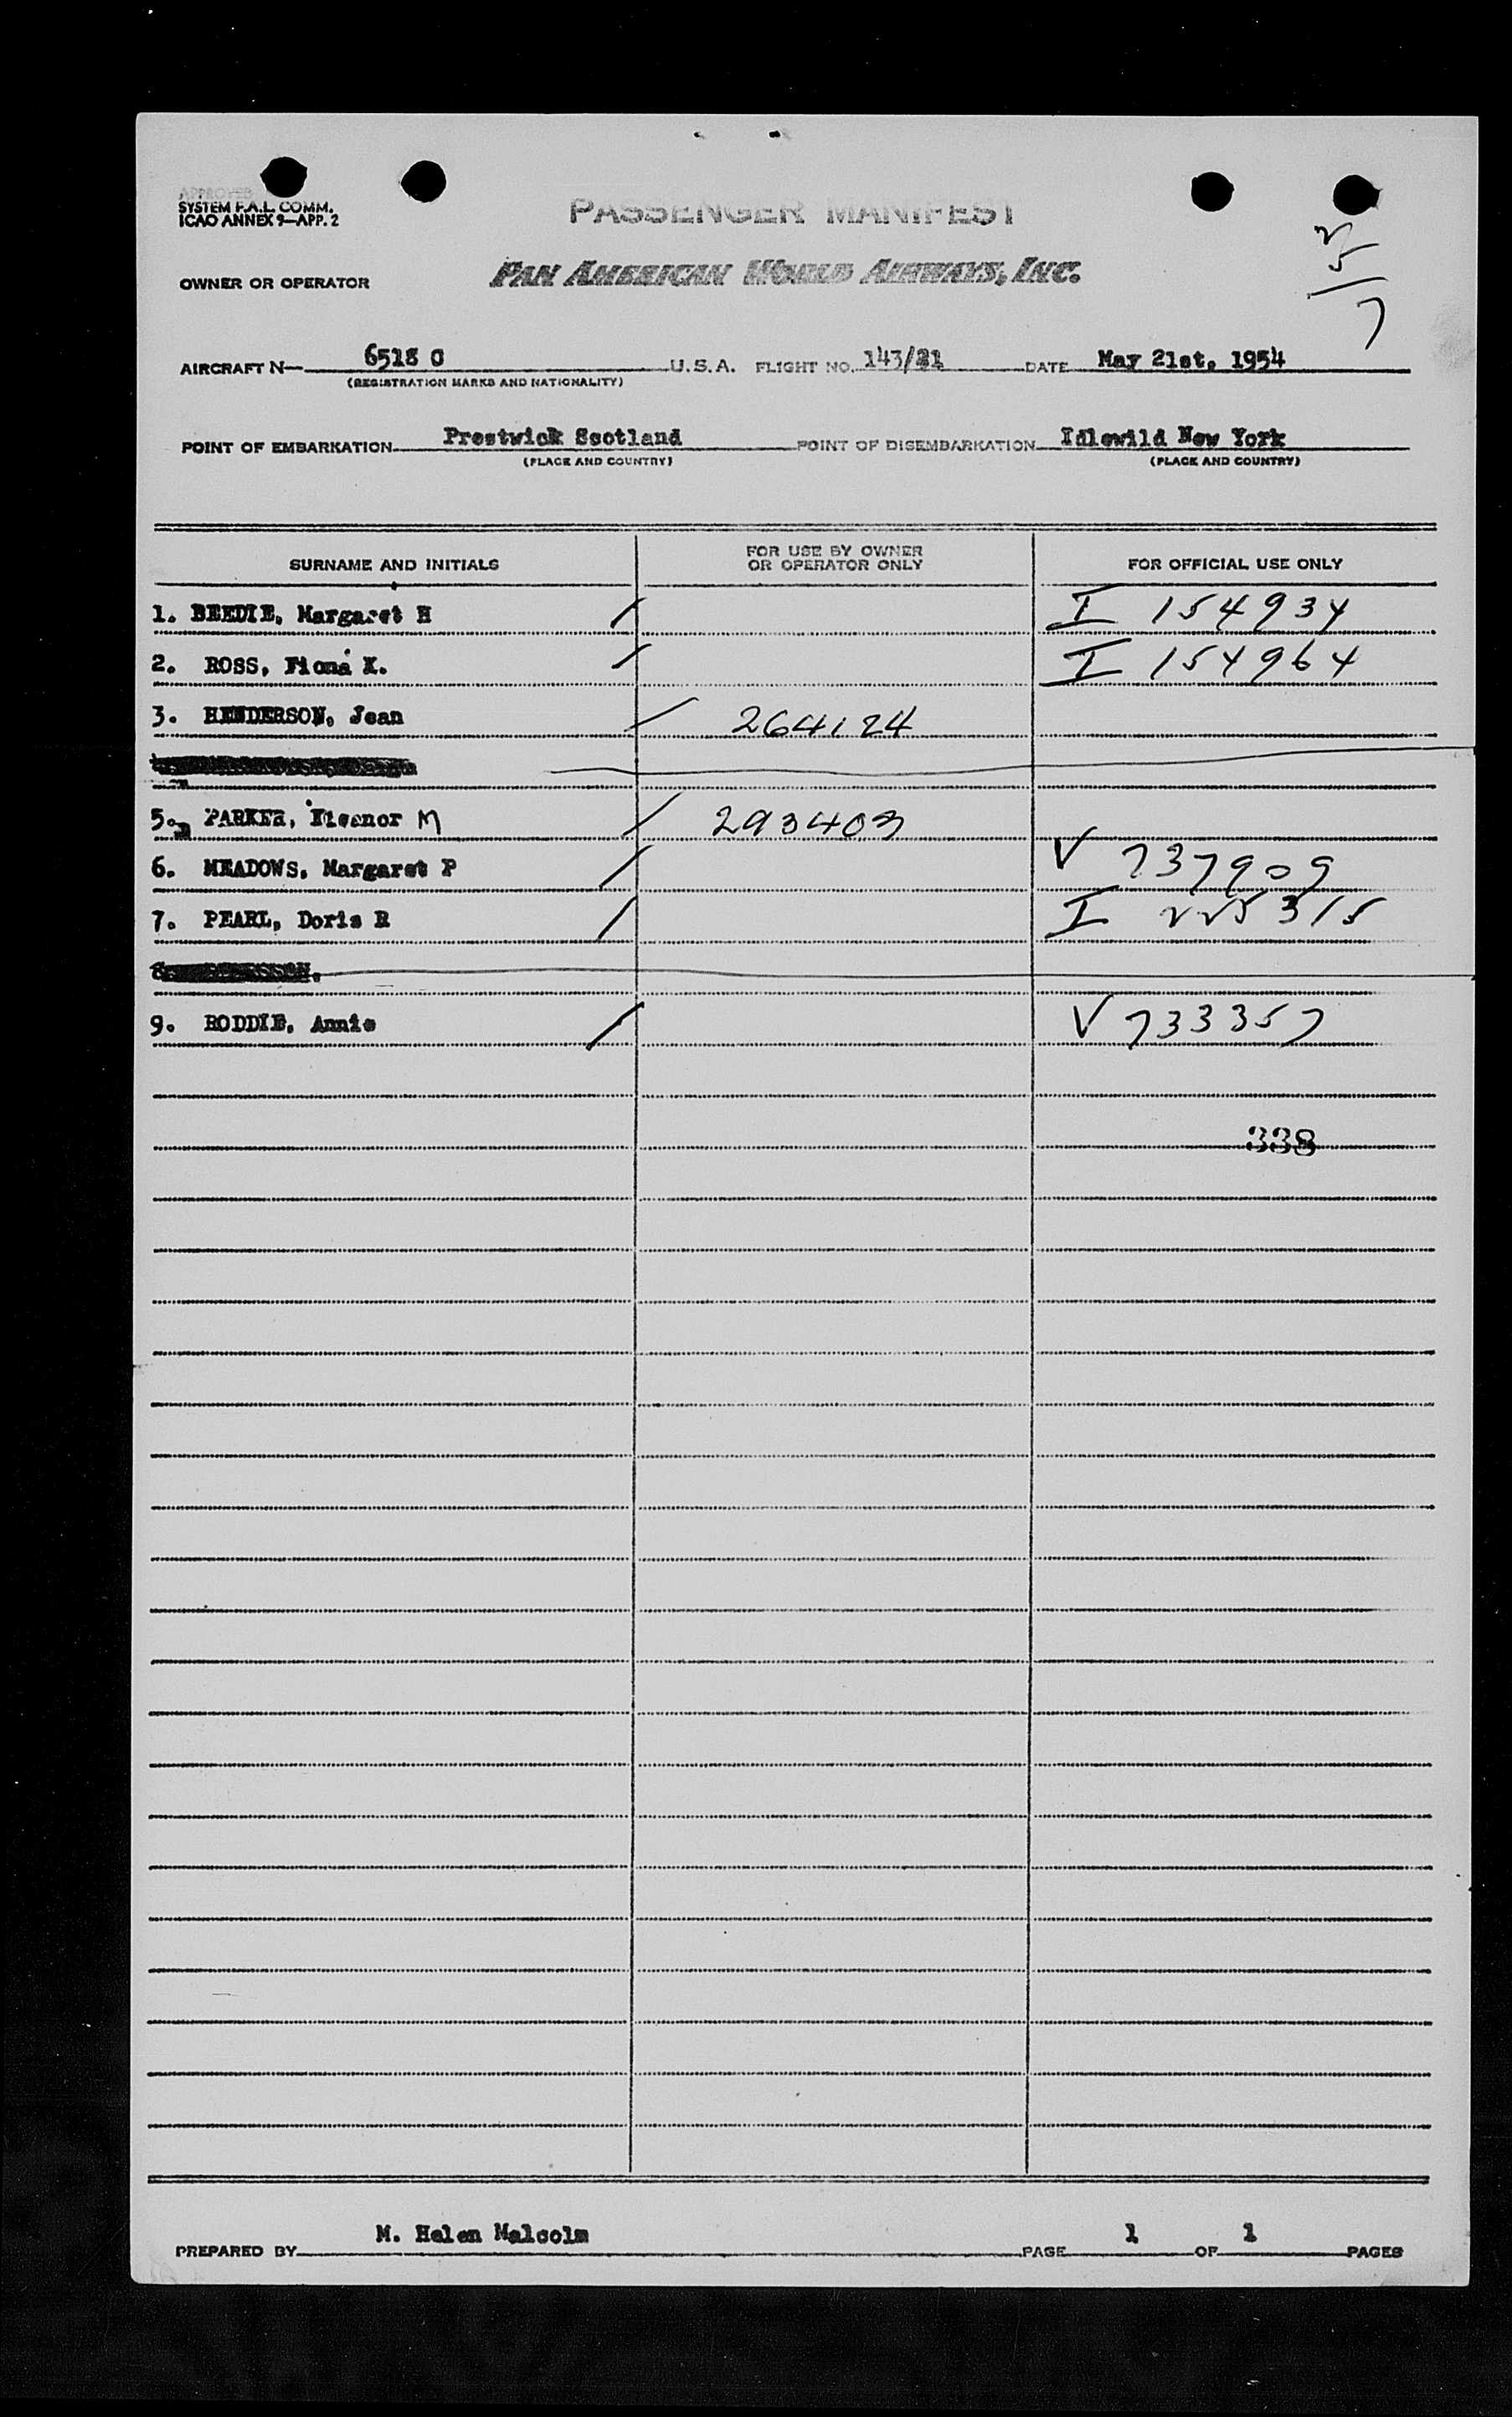 APPROVED
SYSTEM F.A.L. COMM.
ICAO ANNEX 9—APP. 2
PASSENGER MANIFEST
OWNER OR OPERATOR PAN AMERICAN WORLD AIRWAYS, INC.
2
5
7
AIRCRAFT N— 6518 C U.S.A. FLIGHT NO. 143/21 DATE May 21st, 1954
(REGISTRATION MARKS AND NATIONALITY)
POINT OF EMBARKATION Prestwick Scotland POINT OF DISEMBARKATION Idlewild New York
(PLACE AND COUNTRY) (PLACE AND COUNTRY)
SURNAME AND INITIALS FOR USE BY OWNER OR OPERATOR ONLY FOR OFFICIAL USE ONLY
1. BEEDIE, Margaret H / I 154934
2. ROSS, Fiona K. / I 154964
3. HENDERSON, Jean / 264124
5. PARKER, Eleanor M / 293403
6. MEADOWS, Margaret P / V 737909
7. PEARL, Doris R / I 225315
9. RODDIE, Annie / V 733357
338
PREPARED BY M. Helen Malcolm PAGE 1 OF 1 PAGES